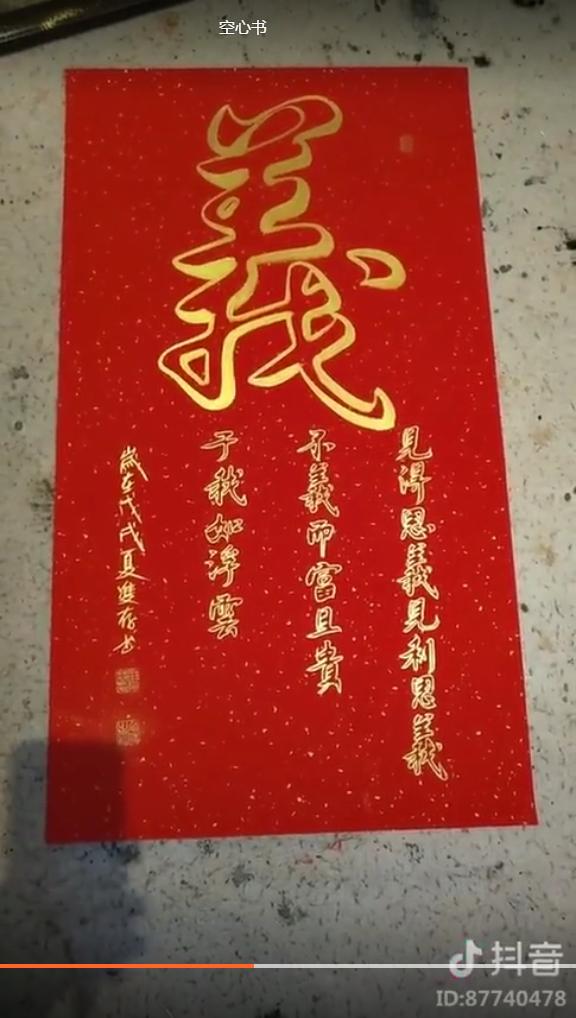 空心书
義
見得思義見利思義
不義而富且貴
于我如浮雲
歲在戊戌夏 书
抖音
ID:87740478